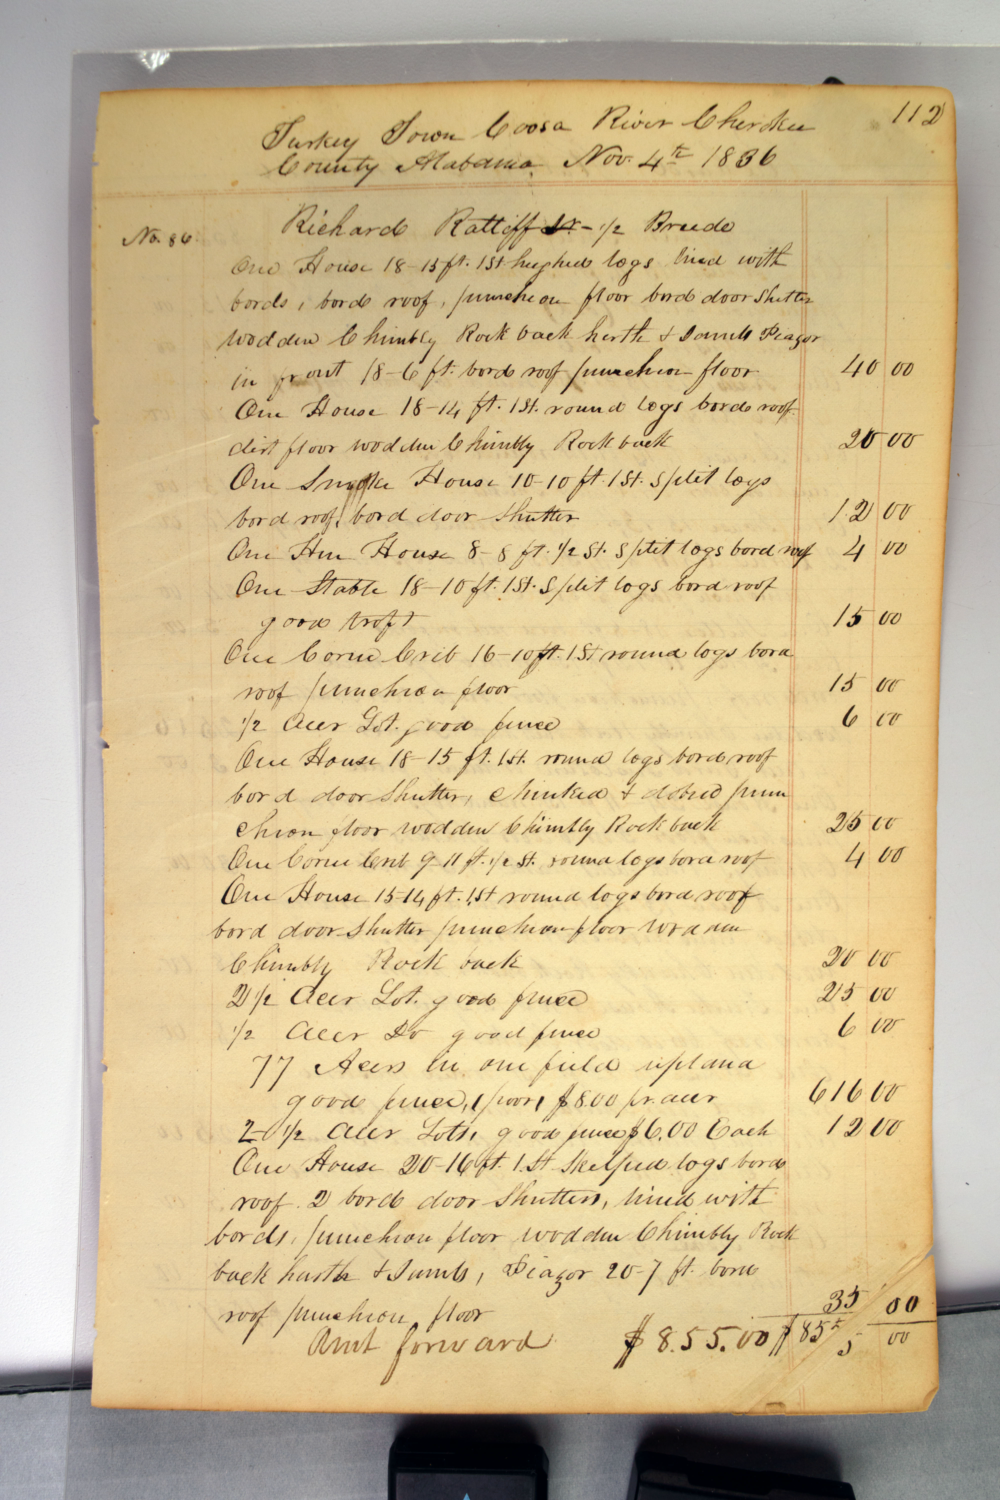 112
Turkey Town Coosa River Cherokee
County Alabama Nov. 4th 1836
No. 86. Richard Ratliff Sr - 1/2 Breed
One House 18-15 ft. 1 St. hughed logs lined with
bords, bord roof, puncheon floor bord door shutter
wodden Chimbly Rock back herth & Jambs Piazor
in front 18-6 ft. bord roof puncheon floor 40 00
One House 18-14 ft. 1 St. round logs bord roof
dirt floor wodden Chimbly Rock back 20 00
One Smoke House 10-10 ft. 1 St. split logs
bord roof, bord door shutter 12 00
One Hen House 8-8 ft. 1/2 St. split logs bord roof 4 00
One Stable 18-10 ft. 1 St. split logs bord roof
good troft 15 00
One Corne Crib 16-10 ft. 1 St round logs bord
roof puncheon floor 15 00
1/2 Acer Lot. good fence 6 00
One House 18-15 ft. 1 St. round logs bord roof
bord door shutter, chinked & dobed pun
cheon floor wodden Chimbly Rock back 25 00
One Corne Crib 9-11 ft. 1/2 St. round logs bord roof 4 00
One House 15-14 ft. 1 St round logs bord roof
bord door shutter puncheon floor wodden
Chimbly Rock back 20 00
2 1/2 Acer Lot. good fence 25 00
1/2 Acer Do good fence 6 00
77 Acers in one field upland
good fence, $8.00 pr. acer 616 00
2- 1/2 Acer Lots, good fence $6.00 Each 12 00
One House 20-16 ft. 1 St. skelped logs bord
roof. 2 bord door shutters, lined with
bords, puncheon floor wodden Chimbly Rock
back harth & Jambs, Piazor 20-7 ft. bord
roof puncheon floor 35 00
Amt forward $855.00 $855 00